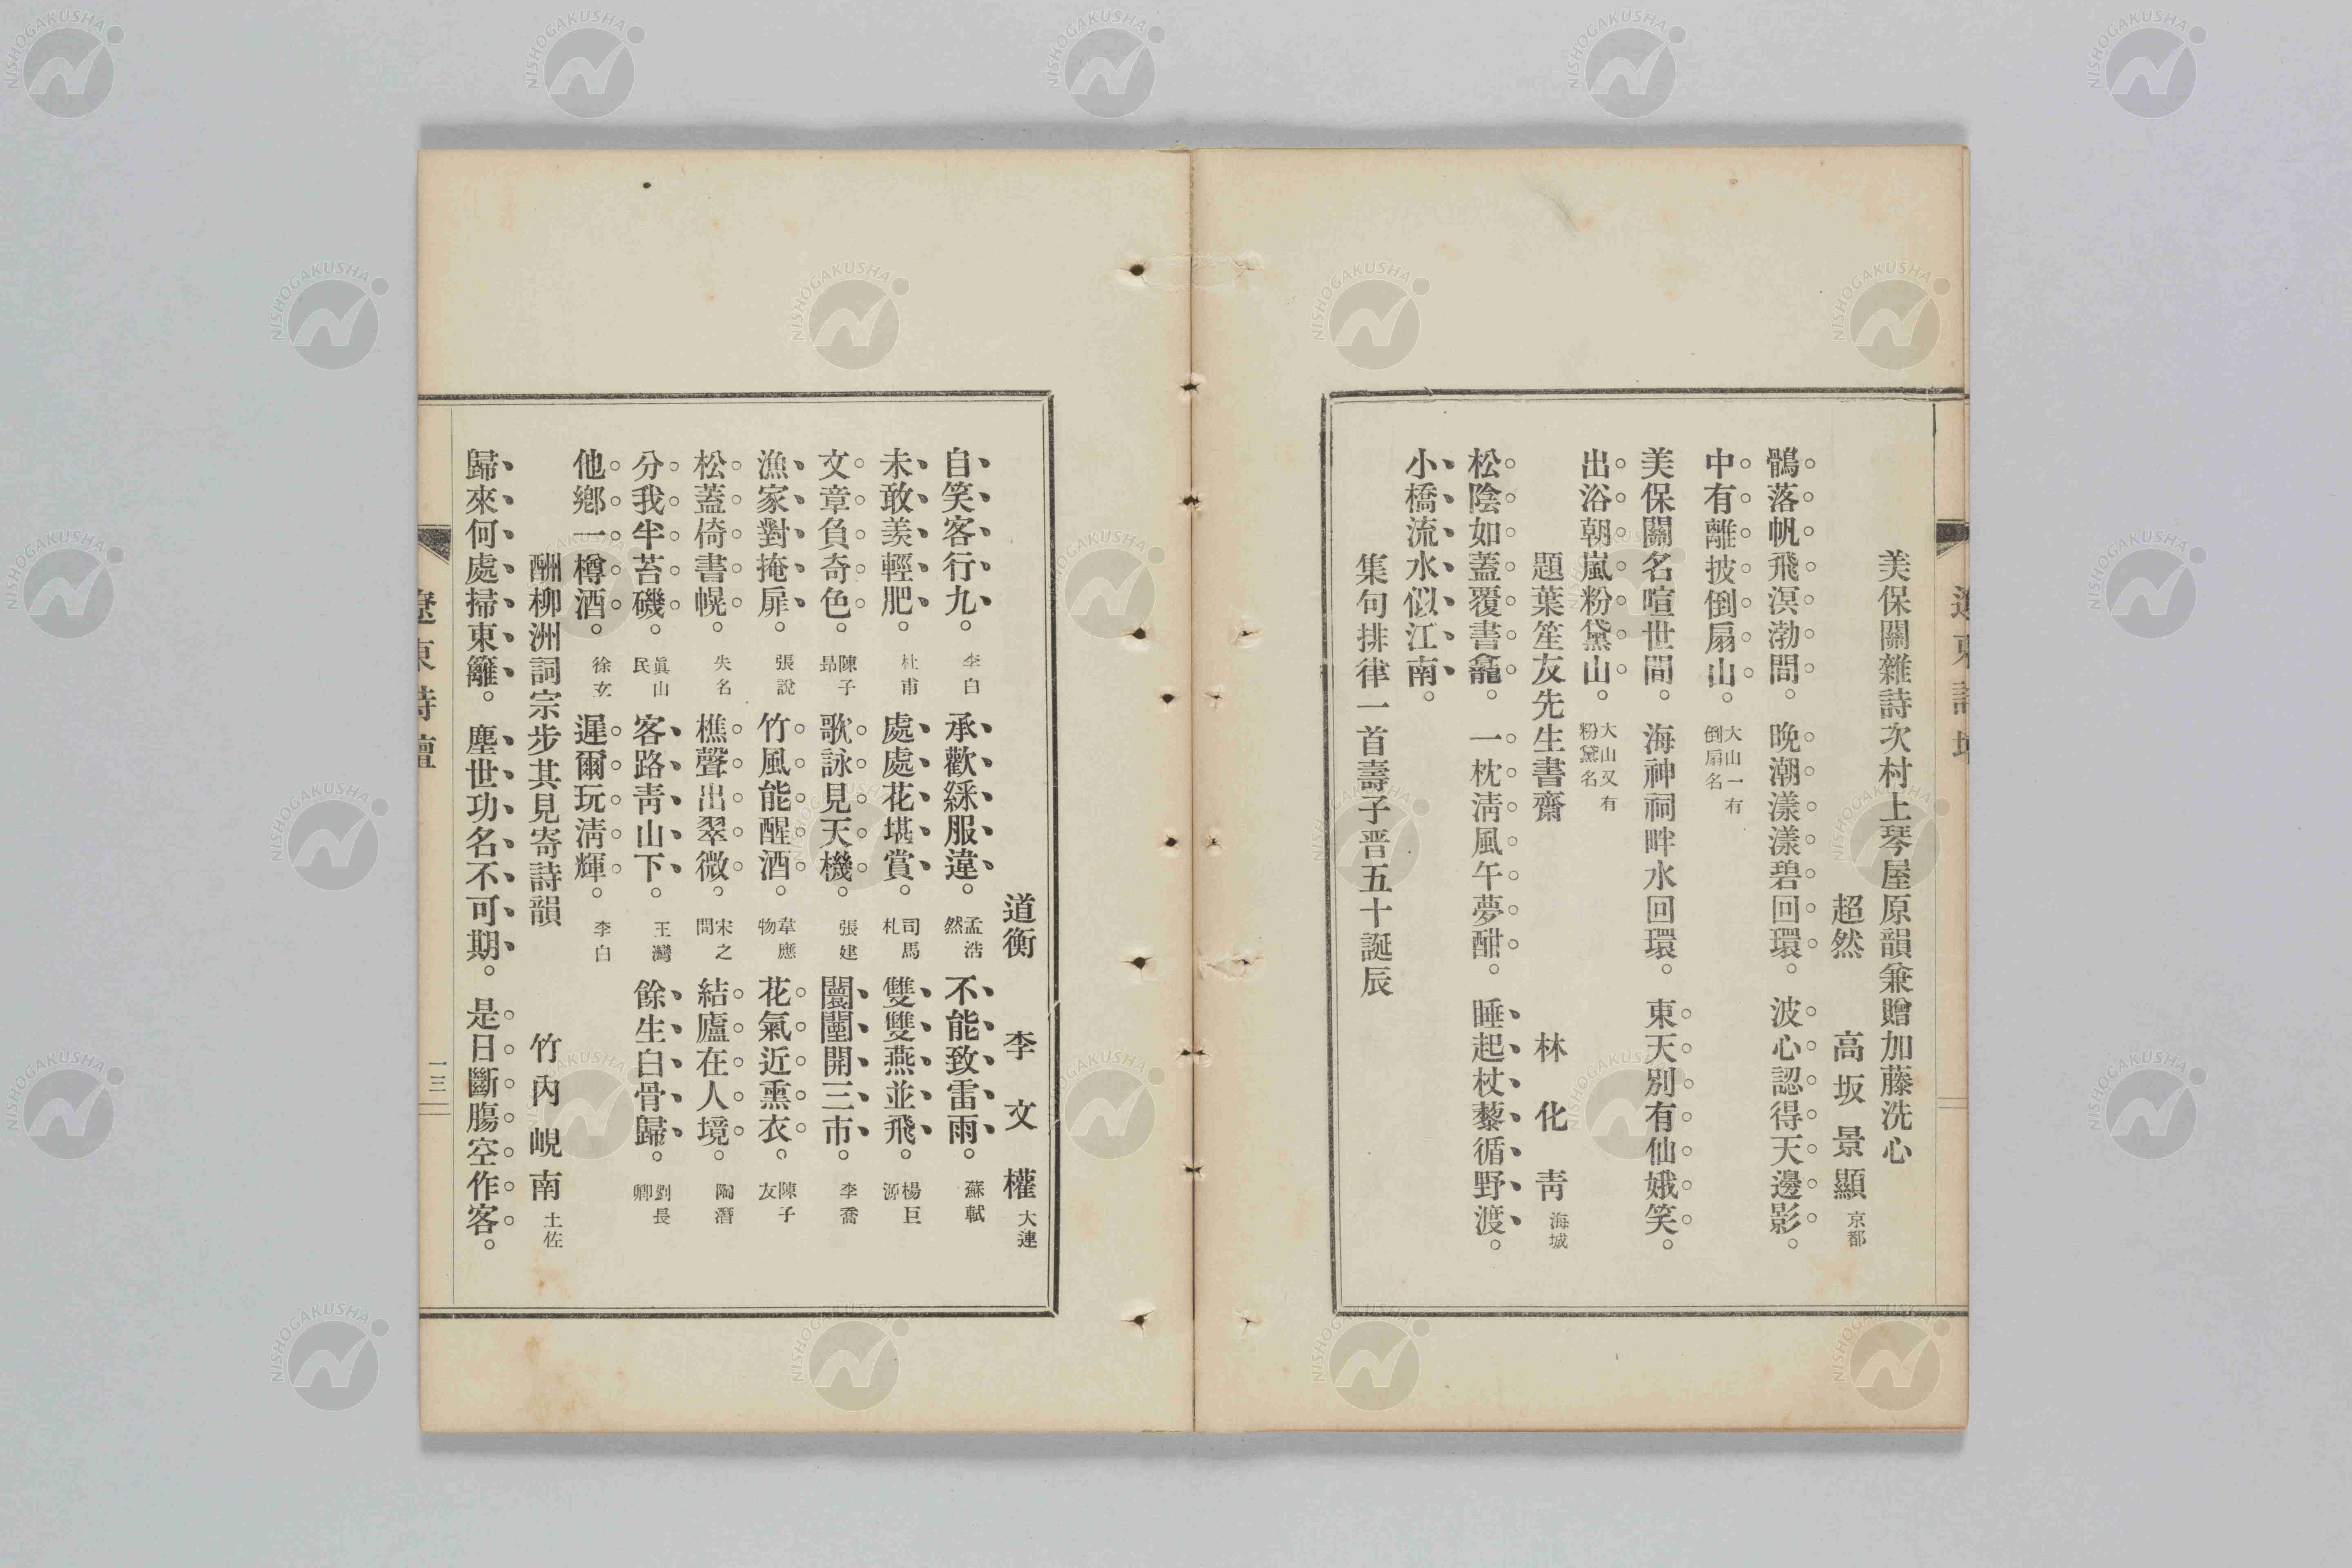 美保關雜詩次村上琴屋原韻兼贈加藤洗心
超然 高坂景顯 京都
鶻落帆飛溟渤間。晩潮漾漾碧回環。波心認得天邊影。
中有離披倒扇山。大山一有倒扇名
美保關名喧世間。海神祠畔水回環。東天別有仙娥笑。
出浴朝嵐粉黛山。大山又有粉黛名
題葉笙友先生書齋 林化靑 海城
松陰如蓋覆書龕。一枕淸風午夢酣。睡起杖藜循野渡。
小橋流水似江南。
集句排律一首壽子晋五十誕辰
道衡 李文權 大連
自笑客行九。李白 承歡綵服違。孟浩然 不能致雷雨。蘇軾
未敢羨輕肥。杜甫 處處花堪賞。司馬札 雙雙燕並飛。楊巨源
文章負奇色。陳子昻 歌詠見天機。張建 闤闠開三市。李喬
漁家對掩扉。張說 竹風能醒酒。韋應物 花氣近熏衣。陳子友
松蓋倚書幌。失名 樵聲出翠微。宋之問 結廬在人境。陶潛
分我半苔磯。眞山民 客路靑山下。王灣 餘生白骨歸。劉長卿
他鄕一樽酒。徐玄 遲爾玩淸輝。李白
酬柳洲詞宗步其見寄詩韻 竹內峴南 土佐
歸來何處掃東籬。塵世功名不可期。是日斷膓空作客。
遼東詩壇
一三
NISHOGAKUSHA